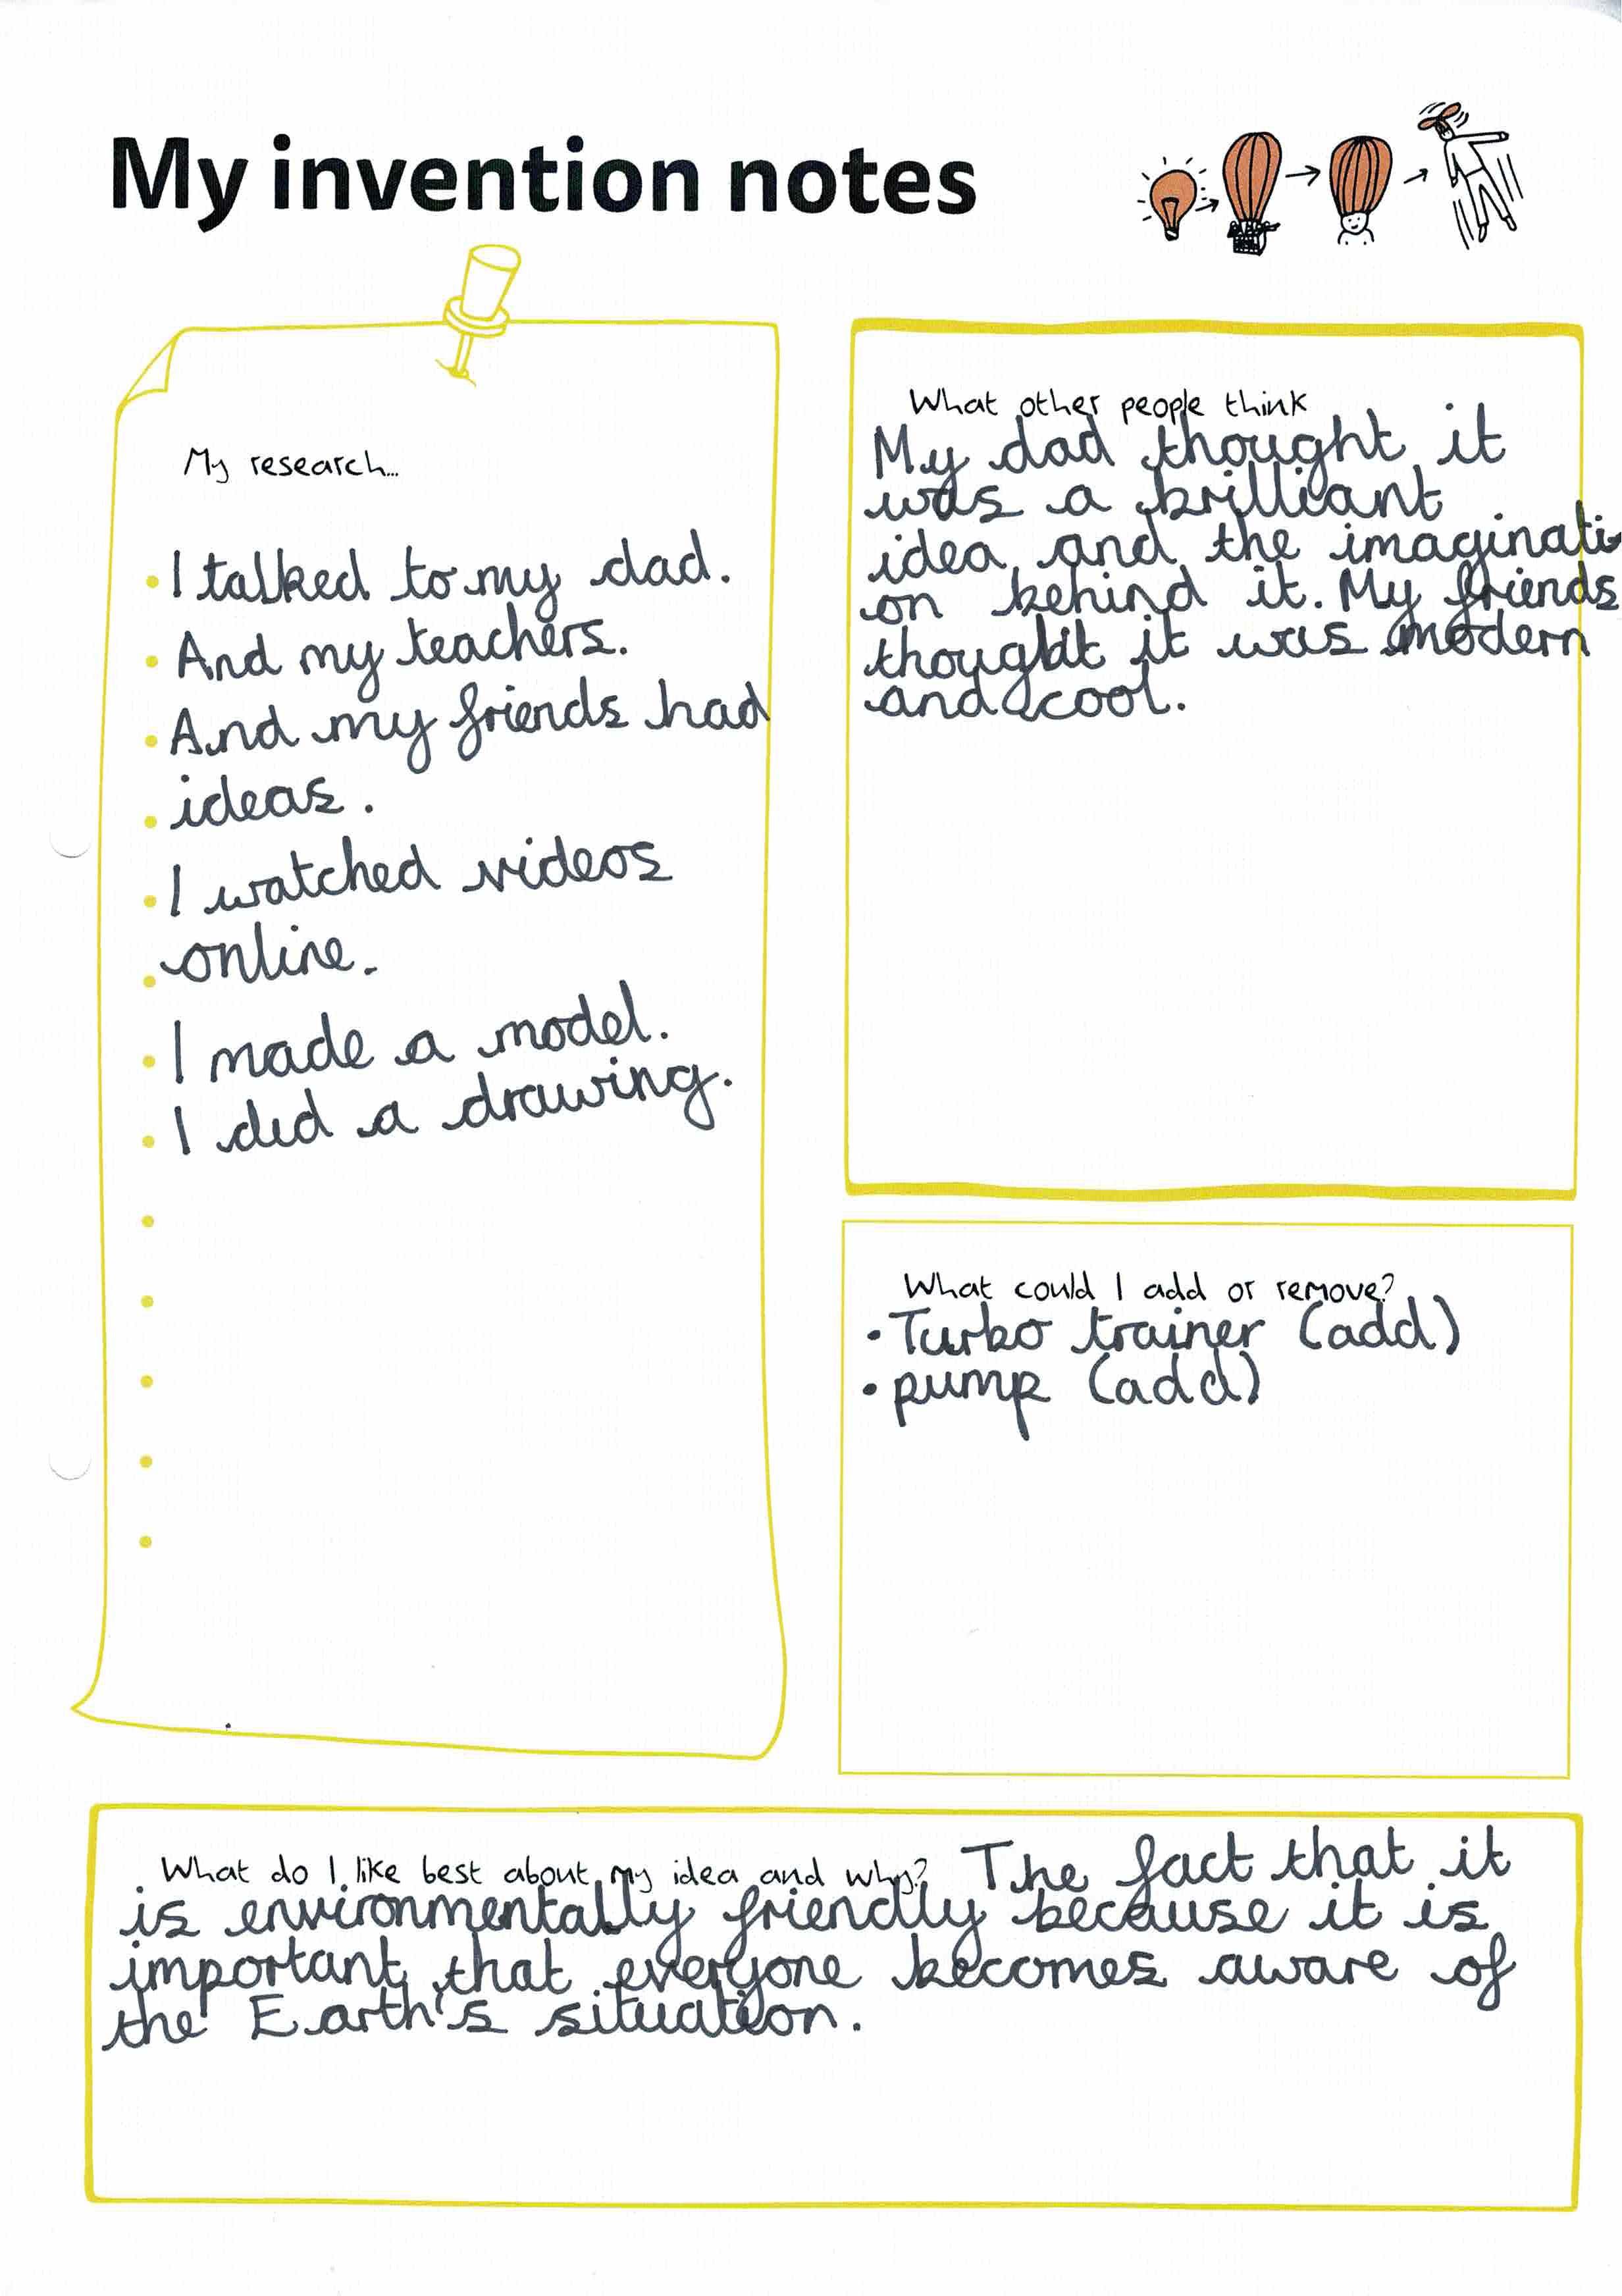 My invention notes
My research...
I talked to my dad.
And my teachers.
And my friends had
ideas.
I watched videos
online.
I made a model.
I did a drawing.
What other people think
My dad thought it
was a brilliant
idea and the imaginati
on behind it. My friends
thought it was modern
and cool.
What could I add or remove?
• Turbo trainer (add)
• pump (add)
What do I like best about my idea and why? The fact that it
is environmentally friendly because it is
important that everyone becomes aware of
the Earth's situation.